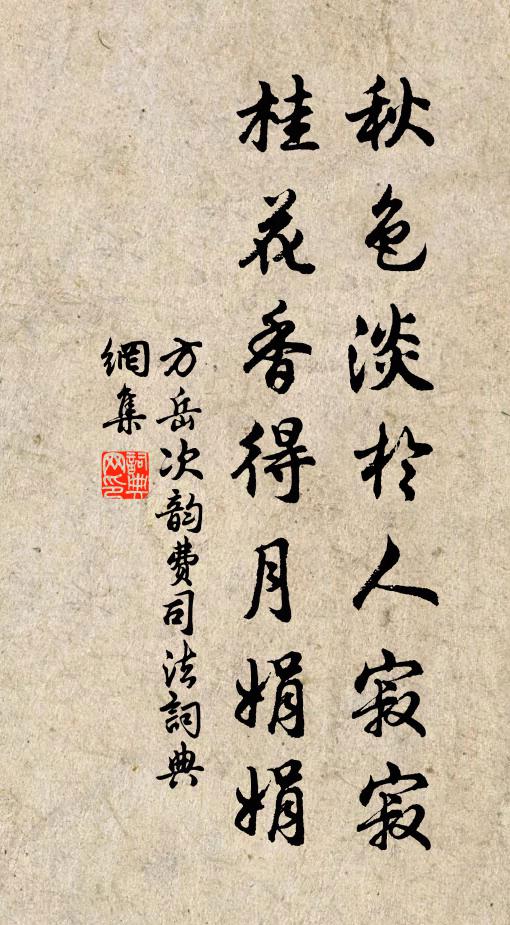 秋色淡於人寂寂
桂花香得月娟娟
方岳次韵費司法詞典
網集
詞典
网印